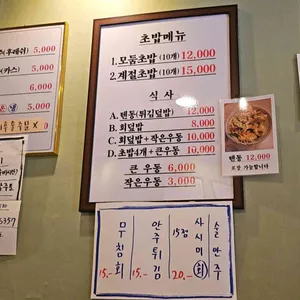 (후레쉬) 5,000
(카스) 5,000
6,000
5,000
초밥메뉴
1. 모둠초밥 (10개) 12,000
2. 계절초밥 (10개) 15,000
식 사
A. 텐동 (튀김덮밥) 12,000
B. 회덮밥 8,000
C. 회덮밥 + 작은우동 10,000
D. 초밥4개 + 큰우동 10,000
큰 우동 6,000
작은우동 3,000
텐동 12,000
포장 가능합니다
술안주
사시미 (회) 15점 20.-
안주튀김 15.-
무침회 15.-
6357